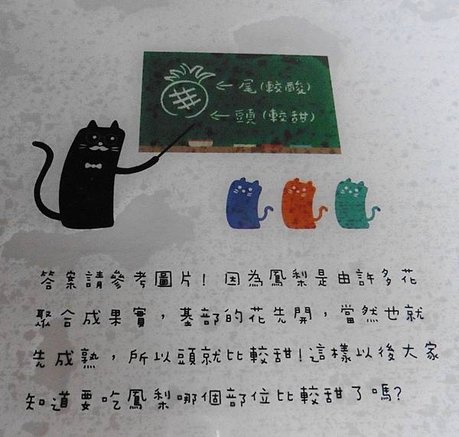 尾(較酸)
頭(較甜)
答案請參考圖片! 因為鳳梨是由許多花
聚合成果實，基部的花先開，當然也就
先成熟，所以頭就比較甜!這樣以後大家
知道要吃鳳梨哪個部位比較甜了嗎?